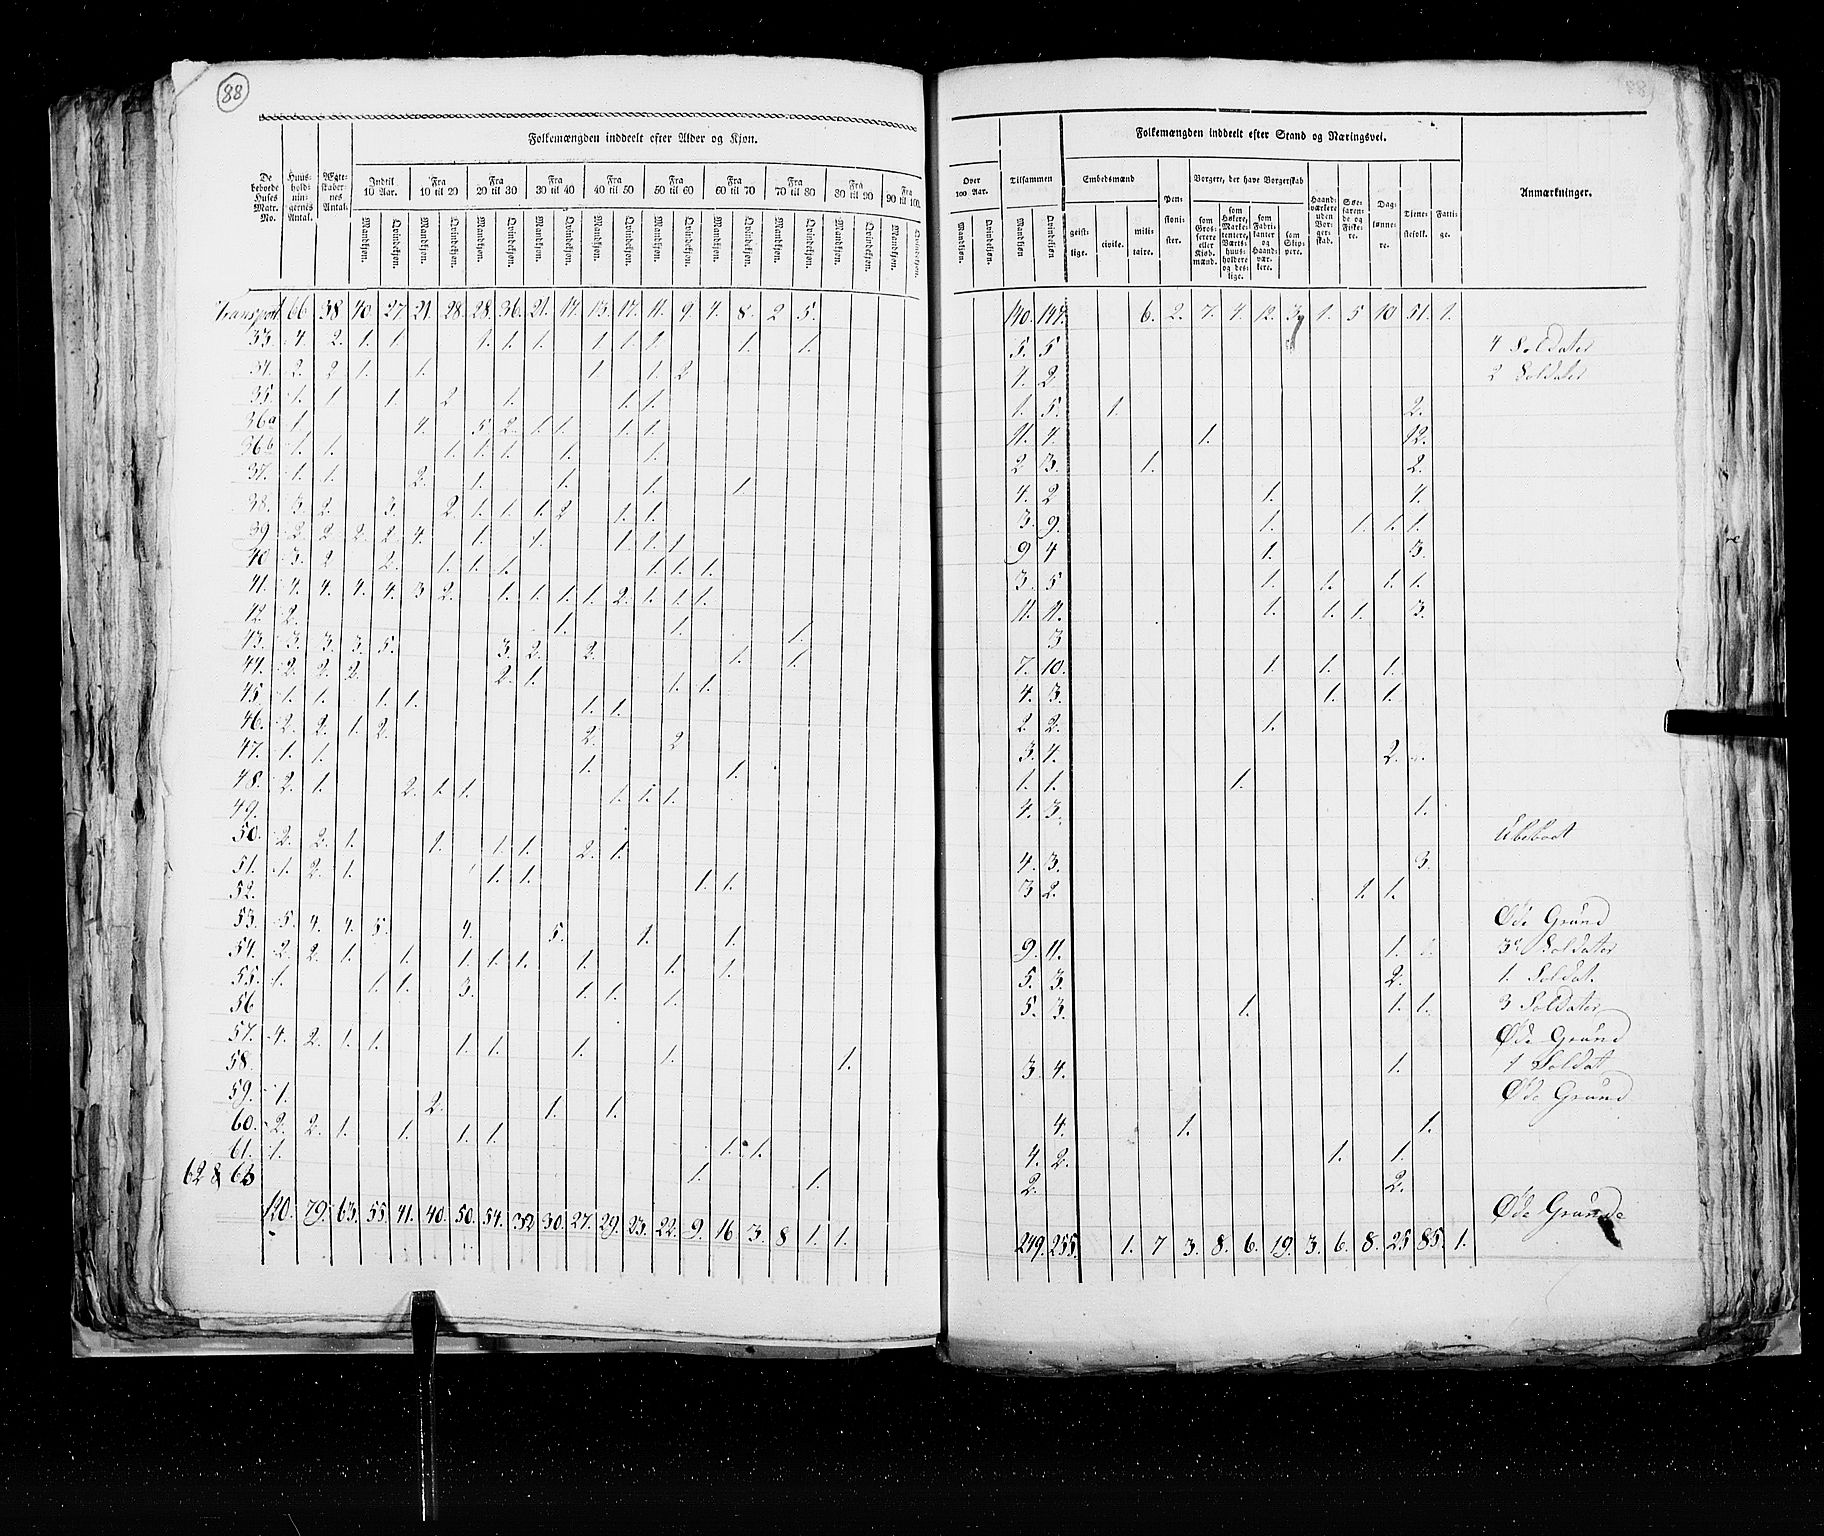 88
Folkemængden inddeelt efter Alder og Kjøn.
De beboede Huses Matr. No. | Huusholdningernes Antal. | Ægteskabernes Antal. | Indtil 10 Aar. | Fra 10 til 20 | Fra 20 til 30 | Fra 30 til 40 | Fra 40 til 50 | Fra 50 til 60 | Fra 60 til 70 | Fra 70 til 80 | Fra 80 til 90 | Fra 90 til 100.
Mandkjøn. Qvindekjøn. Mandkjøn. Qvindekjøn. Mandkjøn. Qvindekjøn. Mandkjøn. Qvindekjøn. Mandkjøn. Qvindekjøn. Mandkjøn. Qvindekjøn. Mandkjøn. Qvindekjøn. Mandkjøn. Qvindekjøn. Mandkjøn. Qvindekjøn. Mandkjøn. Qvindekjøn.
Transport 66 38 40 27. 21. 28. 28. 36. 21. 17. 13. 17. 11. 9. 4. 8. 2 5.
33. 4. 2. 1. 1. 1. 1. 1. 1. 1. 1. 1. 1.
34. 2. 2 1. 1. 1. 1. 2
35. 1. 1 1. 2 1. 1. 1.
36a 1. 4. 5. 2. 1 1. 1. 1.
36b 1. 1. 1. 1. 1. 1. 1.
37. 1. 1. 2. 1. 1. 1. 1.
38. 3 2. 3. 2. 1. 1. 1. 2 1. 1.
39 2. 2 2. 2 4. 1. 1. 1. 1. 1.
40 3. 2 2. 1. 1. 1. 1. 1. 1.
41. 4. 4. 4. 4. 3 2. 1. 1. 1. 1. 2. 1. 1. 1.
42. 2. 1. 1. 1.
43. 3. 3. 3. 5. 3. 2. 2. 1. 1.
44. 2. 2. 2. 2. 1. 1. 1.
45 1. 1. 1. 1. 1. 1.
46. 2. 2. 1. 2. 2. 2
47. 1. 1. 1. 1.
48. 2. 1. 2. 1. 1. 1. 1. 1.
49.
50. 2. 2. 1. 1. 1. 1. 2. 1.
51. 1. 2. 1. 1. 1. 1. 1.
52.
53. 5. 4. 4. 5. 4. 5. 1. 1.
54. 2. 2. 1. 1. 1. 1. 1. 1. 1. 1.
55. 1. 1. 1. 3. 1. 1. 1.
56
57. 4. 2. 1. 1. 1. 1. 1. 1. 1.
58.
59. 1. 2. 1. 1.
60. 2. 2. 1. 1. 1. 1.
61. 1. 1. 1.
62 & 63 1. 1.
120. 79. 63. 55. 41. 40. 50. 54. 32. 30. 27. 29. 23. 22. 9. 16 3. 8 1. 1.
Folkemængden inddeelt efter Stand og Næringsvei.
Over 100 Aar. | Tilsammen | Embedsmænd | Pensionister. | Borgere, der have Borgerskab | Haandværkere uden Borgerskab. | Søefarende og Fiskere. | Daglønnere. | Tjenestefolk. | Fattige. | Anmærkninger.
Mandkjøn. Qvindekjøn. Mandkjøn Qvindekjøn geistlige. civile. militaire. som Grosserere eller Kjøbmænd. som Høkere, Marketentere, Værtshuusholdere og deslige. som Fabrikanter og Haandværkere. som Skippere.
140. 147. 6. 2. 7. 4. 12. 3. 1. 5 10 51. 1.
5. 5 4 Soldater
4. 2 2 Soldater
1. 5. 1. 2.
11. 4. 1. 12.
2 3. 1. 2.
4. 2 1. 4.
3. 9. 1. 1. 1. 1.
9 4 1. 3.
3. 5 1. 1. 1. 1.
11. 11. 1. 1. 1. 3.
3
7. 10. 1. 1. 1.
4. 3. 1. 1.
2 2. 1.
3. 4. 2.
1. 1. 1.
4. 3. 1.
Ubeboet
4. 3. 3.
3 2. 1. 1.
Øde Grund
9. 11. 1. 3 Soldater
5. 3. 2. 1. Soldat.
5. 3. 1. 1. 1. 3 Soldater
Øde Grund
3. 4. 1. 1 Soldat
Øde Grund
4. 1. 1.
4. 2. 1. 1.
2. 2.
Øde Grunde
249. 255. 1. 7 3. 8. 6. 19. 3. 6. 8. 25 85. 1.